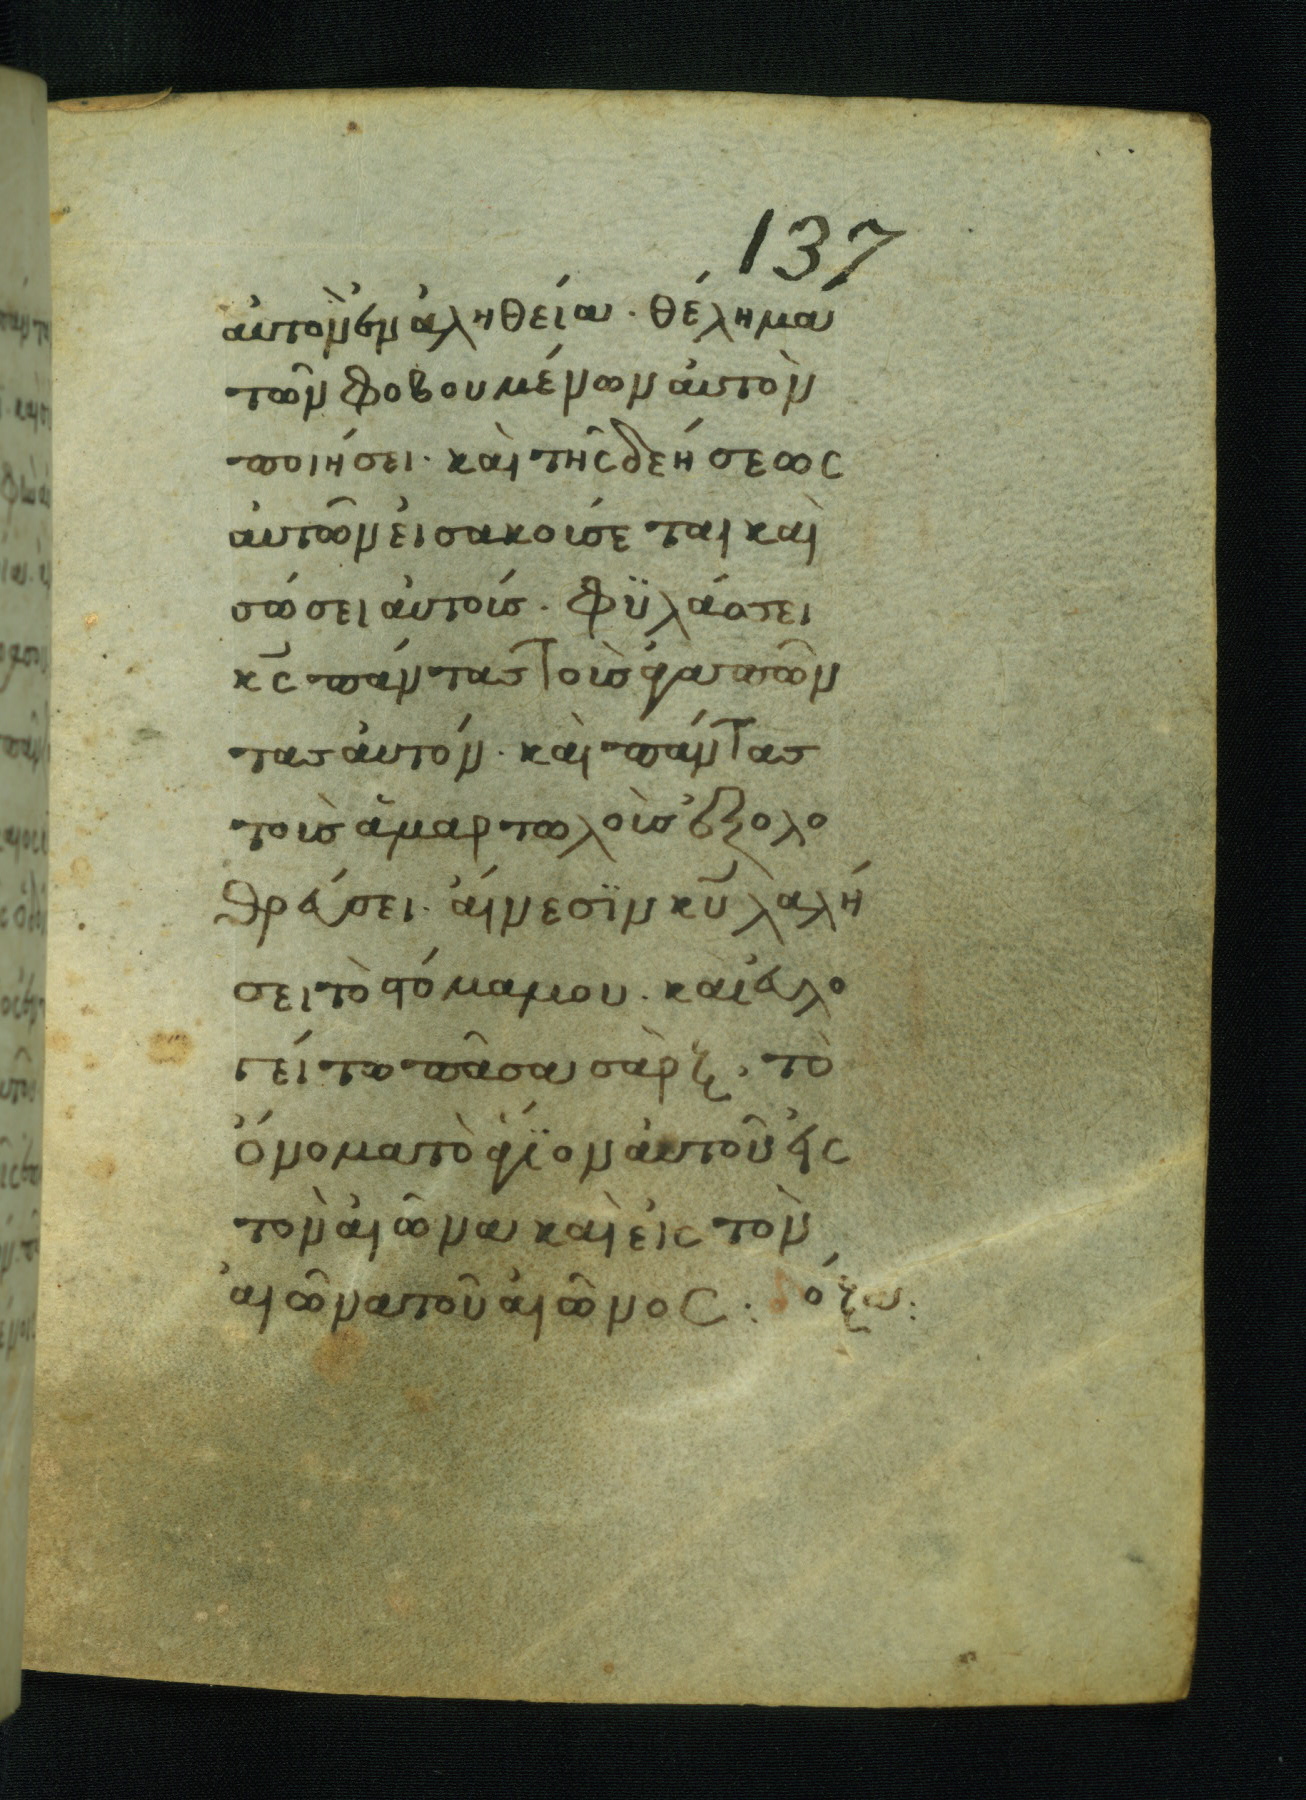 137
ἀυτὸν ἐν ἀληθεία · θέλημα
τῶν φοβουμένων ἀυτὸν
ποιήσει · καὶ τῆς δεήσεως
ἀυτῶν ἐισακούσεται καὶ
σώσει ἀυτούσ · φϋλάσσει
κ̅ς πάντασ τοὺσ ἀγαπῶν
τασ ἀυτόν · καὶ πάντασ
τοὺσ ἁμαρτωλοὺσ ἐξολο
θρεύσει · ἀίνεσϊν κ̅υ λαλή
σει τὸ στόμα μου · καὶ ἐυλο
γείτω πᾶσα σὰρξ · τὸ
ὄνομα τὸ ἅγϊον ἀυτοῦ ἐις
τὸν ἀιῶνα καὶ ἐις τὸν
ἀιῶνα τοῦ ἀιῶνος : δόξα :